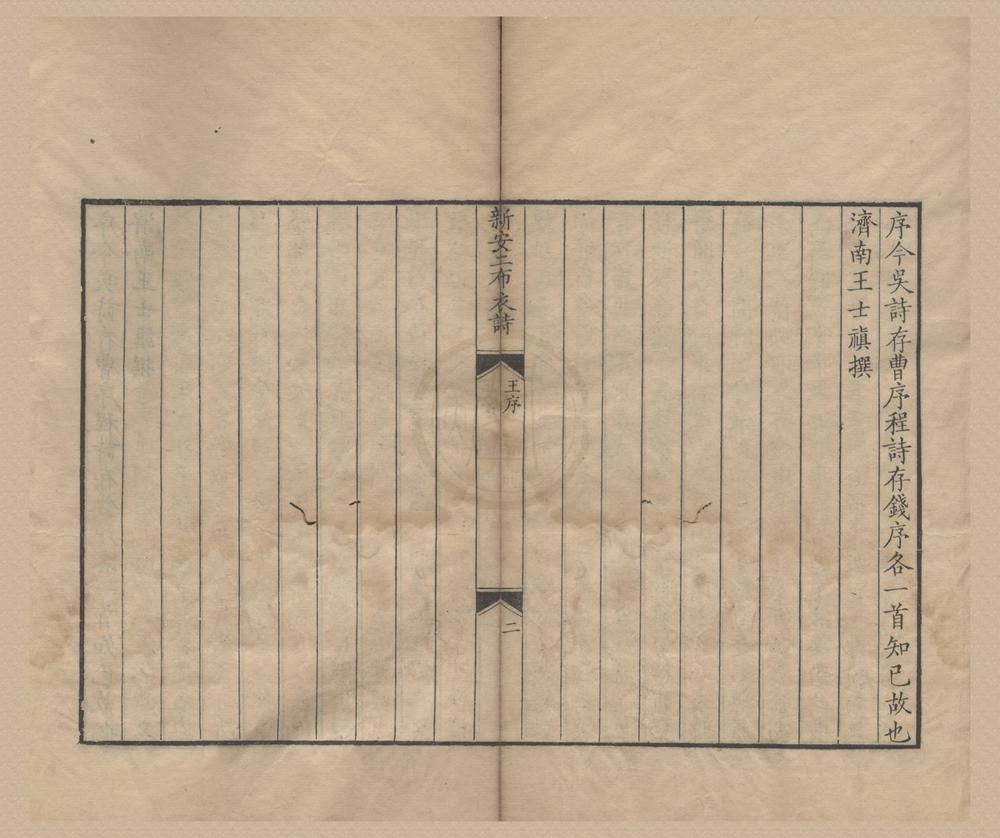 序今吳詩存曹序程詩存錢序各一首知已故也
濟南王士禛撰
新安二布衣詩
王序
二